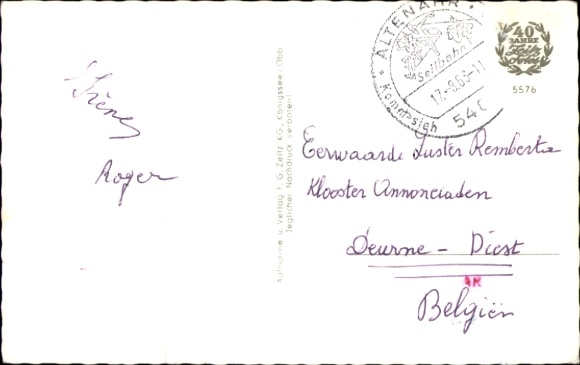 Irène
Roger
Aufnahme u. Verlag F. G. Zeitz KG., Königssee/Obb.
Jeglicher Nachdruck verboten!
ALTENAHR
Seilbahn
17.-8.65-11
Kommt-sich
40
JAHRE
Zeitz
Foto
5576
Eerwaarde Zuster Remberta
Klooster Annonciaden
Deurne - Diest
Belgiën